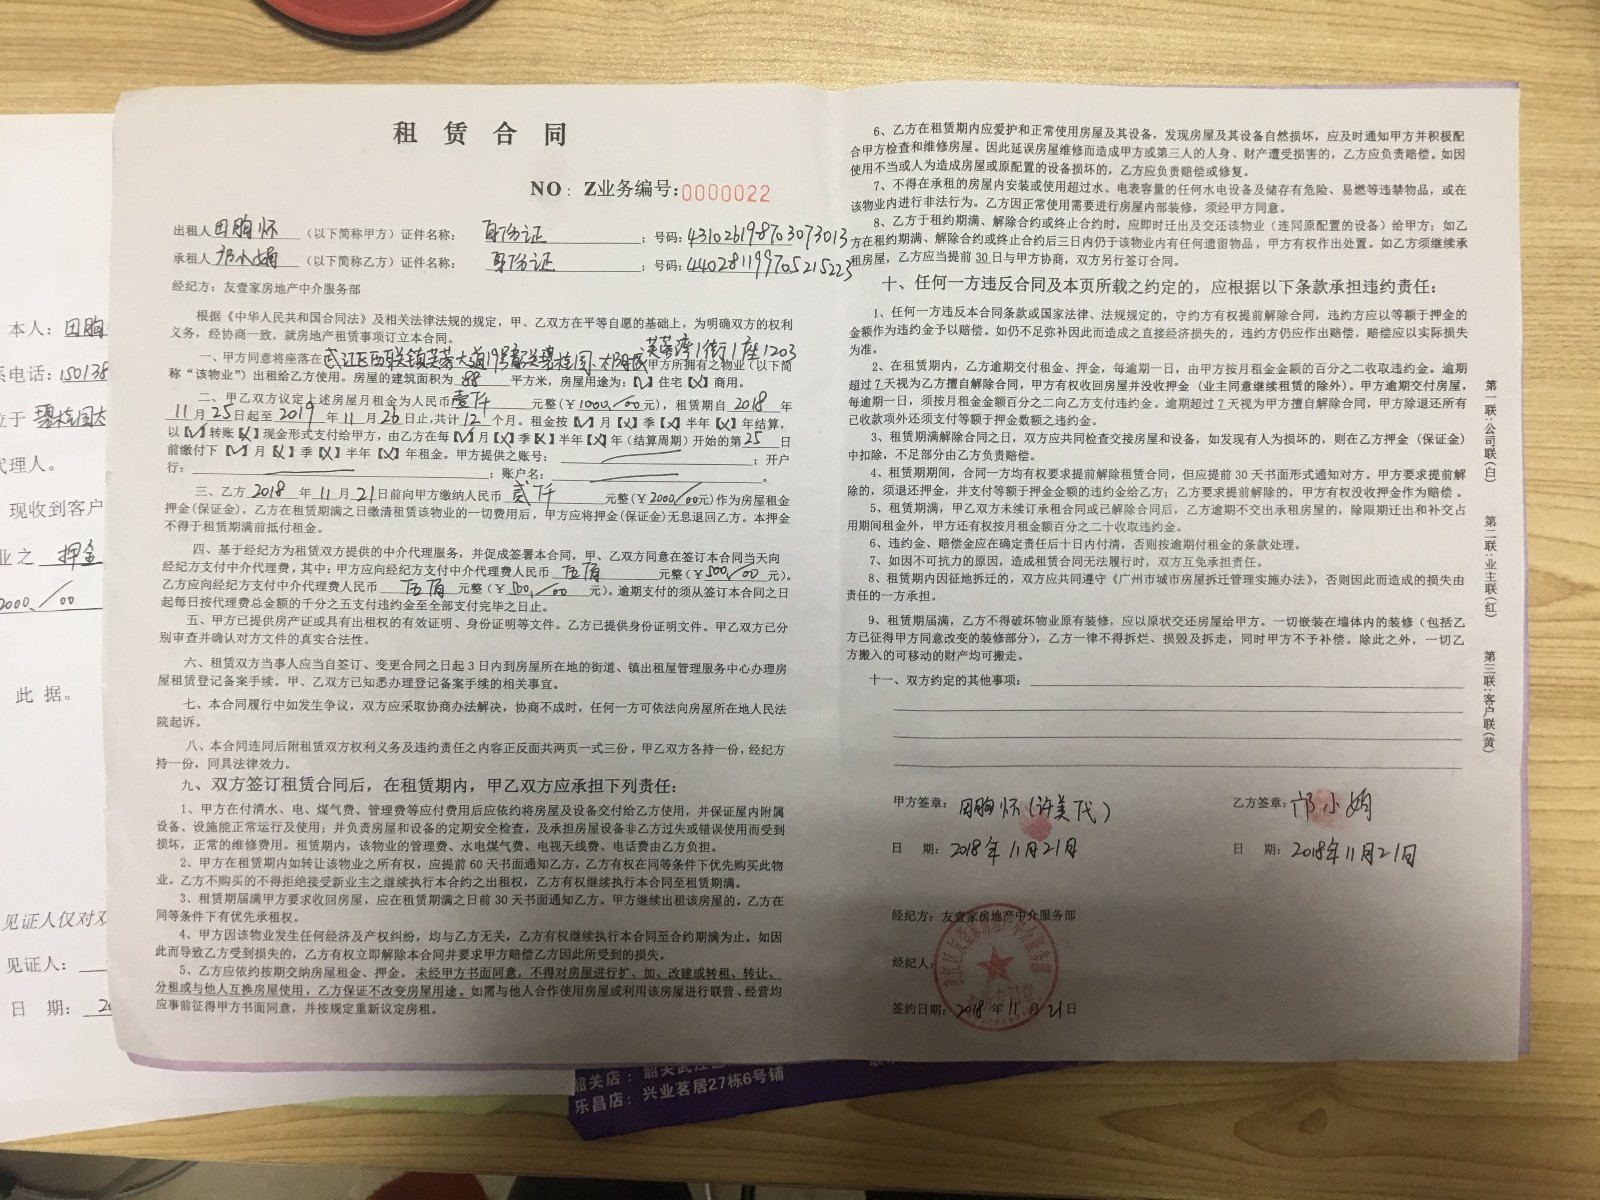 租赁合同
NO：Z业务编号：0000022
出租人田胸怀（以下简称甲方）证件名称：身份证；号码：431026198703073013
承租人邝小娟（以下简称乙方）证件名称：身份证；号码：440281199705215223
经纪方：友壹家房地产中介服务部
根据《中华人民共和国合同法》及相关法律法规的规定，甲、乙双方在平等自愿的基础上，为明确双方的权利
义务，经协商一致，就房地产租赁事项订立本合同。
芙蓉湾1街1座1203
一、甲方同意将座落在武江区西联镇芙蓉大道19号韶关碧桂园太阳城甲方所拥有之物业（以下简
称“该物业”）出租给乙方使用。房屋的建筑面积为88平方米，房屋用途为：【√】住宅【×】商用。
二、甲乙双方议定上述房屋月租金为人民币壹仟元整（￥1000./00元），租赁期自2018年
11月25日起至2019年11月26日止，共计12个月。租金按【√】月【×】季【×】半年【×】年结算，
以【√】转账【×】现金形式支付给甲方，由乙方在每【√】月【×】季【×】半年【×】年（结算周期）开始的第25日
前缴付下【√】月【×】季【×】半年【×】年租金。甲方提供之账号：；开户
行：；账户名：。
三、乙方2018年11月21日前向甲方缴纳人民币贰仟元整（￥2000./00元）作为房屋租金
押金（保证金），乙方在租赁期满之日缴清租赁该物业的一切费用后，甲方应将押金（保证金）无息退回乙方。本押金
不得于租赁期满前抵付租金。
四、基于经纪方为租赁双方提供的中介代理服务，并促成签署本合同，甲、乙双方同意在签订本合同当天向
经纪方支付中介代理费，其中：甲方应向经纪方支付中介代理费人民币伍佰元整（￥500./00元）。
乙方应向经纪方支付中介代理费人民币伍佰元整（￥500./00元）。逾期支付的须从签订本合同之日
起每日按代理费总金额的千分之五支付违约金至全部支付完毕之日止。
五、甲方已提供房产证或具有出租权的有效证明、身份证明等文件。乙方已提供身份证明文件。甲乙双方已分
别审查并确认对方文件的真实合法性。
六、租赁双方当事人应当自签订、变更合同之日起3日内到房屋所在地的街道、镇出租屋管理服务中心办理房
屋租赁登记备案手续。甲、乙双方已知悉办理登记备案手续的相关事宜。
七、本合同履行中如发生争议，双方应采取协商办法解决，协商不成时，任何一方可依法向房屋所在地人民法
院起诉。
八、本合同连同后附租赁双方权利义务及违约责任之内容正反面共两页一式三份，甲乙双方各持一份，经纪方
持一份，同具法律效力。
九、双方签订租赁合同后，在租赁期内，甲乙双方应承担下列责任：
1、甲方在付清水、电、煤气费、管理费等应付费用后应依约将房屋及设备交付给乙方使用，并保证屋内附属
设备、设施能正常运行及使用；并负责房屋和设备的定期安全检查，及承担房屋设备非乙方过失或错误使用而受到
损坏，正常的维修费用。租赁期内，该物业的管理费、水电煤气费、电视天线费、电话费由乙方负担。
2、甲方在租赁期内如转让该物业之所有权，应提前60天书面通知乙方，乙方有权在同等条件下优先购买此物
业。乙方不购买的不得拒绝接受新业主之继续执行本合约之出租权，乙方有权继续执行本合同至租赁期满。
3、租赁期届满甲方要求收回房屋，应在租赁期满之日前30天书面通知乙方。甲方继续出租该房屋的，乙方在
同等条件下有优先承租权。
4、甲方因该物业发生任何经济及产权纠纷，均与乙方无关，乙方有权继续执行本合同至合约期满为止。如因
此而导致乙方受到损失的，乙方有权立即解除本合同并要求甲方赔偿乙方因此所受到的损失。
5、乙方应依约按期交纳房屋租金、押金。未经甲方书面同意，不得对房屋进行扩、加、改建或转租、转让、
分租或与他人互换房屋使用，乙方保证不改变房屋用途。如需与他人合作使用房屋或利用该房屋进行联营、经营均
应事前征得甲方书面同意，并按规定重新议定房租。
6、乙方在租赁期内应爱护和正常使用房屋及其设备，发现房屋及其设备自然损坏，应及时通知甲方并积极配
合甲方检查和维修房屋。因此延误房屋维修而造成甲方或第三人的人身、财产遭受损害的，乙方应负责赔偿。如因
使用不当或人为造成房屋或原配置的设备损坏的，乙方应负责赔偿或修复。
7、不得在承租的房屋内安装或使用超过水、电表容量的任何水电设备及储存有危险、易燃等违禁物品，或在
该物业内进行非法行为。乙方因正常使用需要进行房屋内部装修，须经甲方同意。
8、乙方于租约期满、解除合约或终止合约时，应即时迁出及交还该物业（连同原配置的设备）给甲方；如乙
方在租约期满、解除合约或终止合约后三日内仍于该物业内有任何遗留物品，甲方有权作出处置。如乙方须继续承
租房屋，乙方应当提前30日与甲方协商，双方另行签订合同。
十、任何一方违反合同及本页所载之约定的，应根据以下条款承担违约责任：
1、任何一方违反本合同条款或国家法律、法规规定的，守约方有权提前解除合同，违约方应以等额于押金的
金额作为违约金予以赔偿。如仍不足弥补因此而造成之直接经济损失的，违约方仍应作出赔偿，赔偿应以实际损失
为准。
2、在租赁期内，乙方逾期交付租金、押金，每逾期一日，由甲方按月租金金额的百分之二收取违约金。逾期
超过7天视为乙方擅自解除合同，甲方有权收回房屋并没收押金（业主同意继续租赁的除外）。甲方逾期交付房屋，
每逾期一日，须按月租金金额百分之二向乙方支付违约金。逾期超过7天视为甲方擅自解除合同，甲方除退还所有
已收款项外还须支付等额于押金数额之违约金。
3、租赁期满解除合同之日，双方应共同检查交接房屋和设备，如发现有人为损坏的，则在乙方押金（保证金）
中扣除，不足部分由乙方负责赔偿。
4、租赁期期间，合同一方均有权要求提前解除租赁合同，但应提前30天书面形式通知对方。甲方要求提前解
除的，须退还押金，并支付等额于押金金额的违约金给乙方；乙方要求提前解除的，甲方有权没收押金作为赔偿。
5、租赁期满，甲乙双方未续订承租合同或已解除合同后，乙方逾期不交出承租房屋的，除限期迁出和补交占
用期间租金外，甲方还有权按月租金额百分之二十收取违约金。
6、违约金、赔偿金应在确定责任后十日内付清，否则按逾期付租金的条款处理。
7、如因不可抗力的原因，造成租赁合同无法履行时，双方互免承担责任。
8、租赁期内因征地拆迁的，双方应共同遵守《广州市城市房屋拆迁管理实施办法》，否则因此而造成的损失由
责任的一方承担。
9、租赁期届满，乙方不得破坏物业原有装修，应以原状交还房屋给甲方。一切嵌装在墙体内的装修（包括乙
方已征得甲方同意改变的装修部分），乙方一律不得拆烂、损毁及拆走，同时甲方不予补偿。除此之外，一切乙
方搬入的可移动的财产均可搬走。
十一、双方约定的其他事项：
甲方签章：田胸怀（许美代）
乙方签章：邝小娟
日期：2018年11月21日
日期：2018年11月21日
经纪方：友壹家房地产中介服务部
经纪人：
签约日期：2018年11月21日
第一联：公司联（白）
第二联：业主联（红）
第三联：客户联（黄）
本人：田胸
系电话：150138
位于碧桂园太
代理人。
现收到客户
业之押金
2000./00
此据。
见证人仅对双
见证人：
日期：20
韶关店：韶关武江区
乐昌店：兴业茗居27栋6号铺